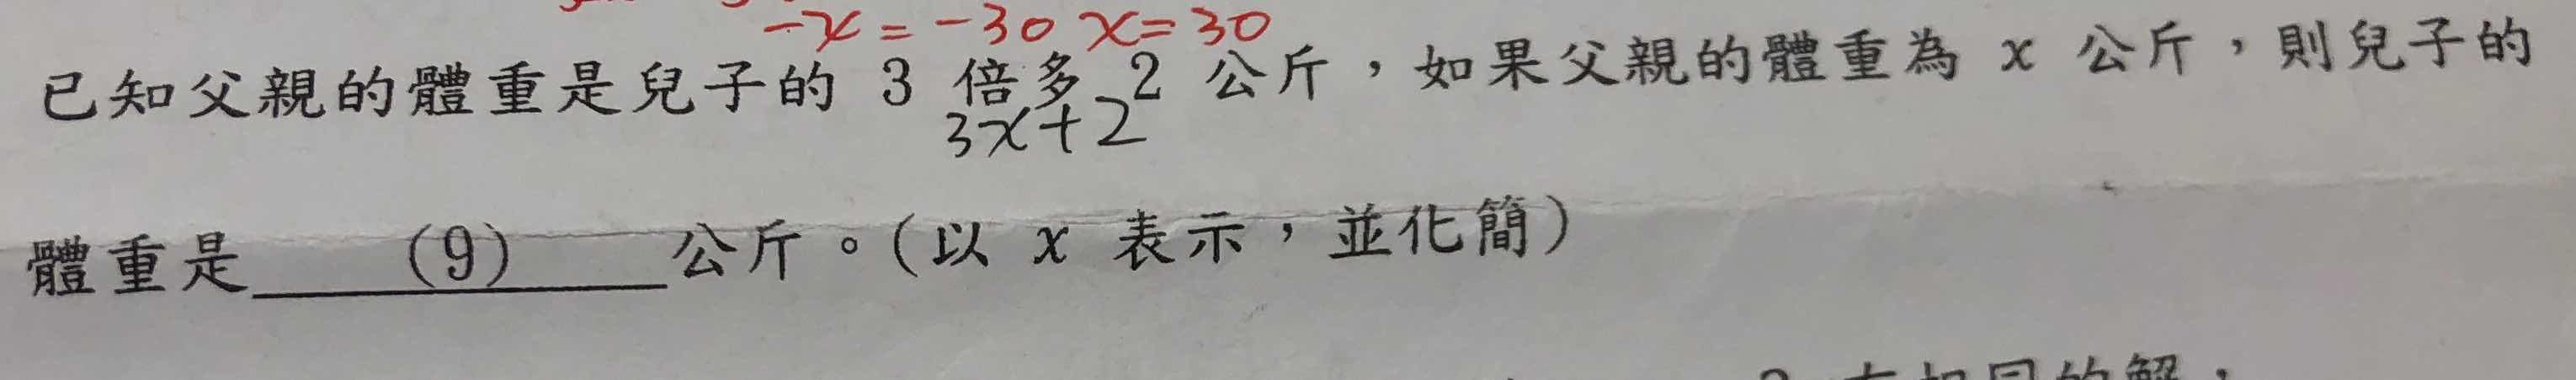 -x=-30 x=30
已知父親的體重是兒子的 3 倍多 2 公斤，如果父親的體重為 x 公斤，則兒子的
3x+2
體重是 (9) 公斤。(以 x 表示，並化簡)